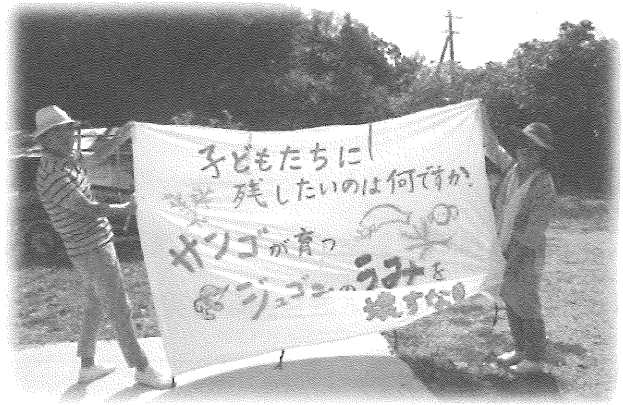 子どもたちに
残したいのは何ですか。
サンゴが育つ
ジュゴンのうみを
壊すな!!